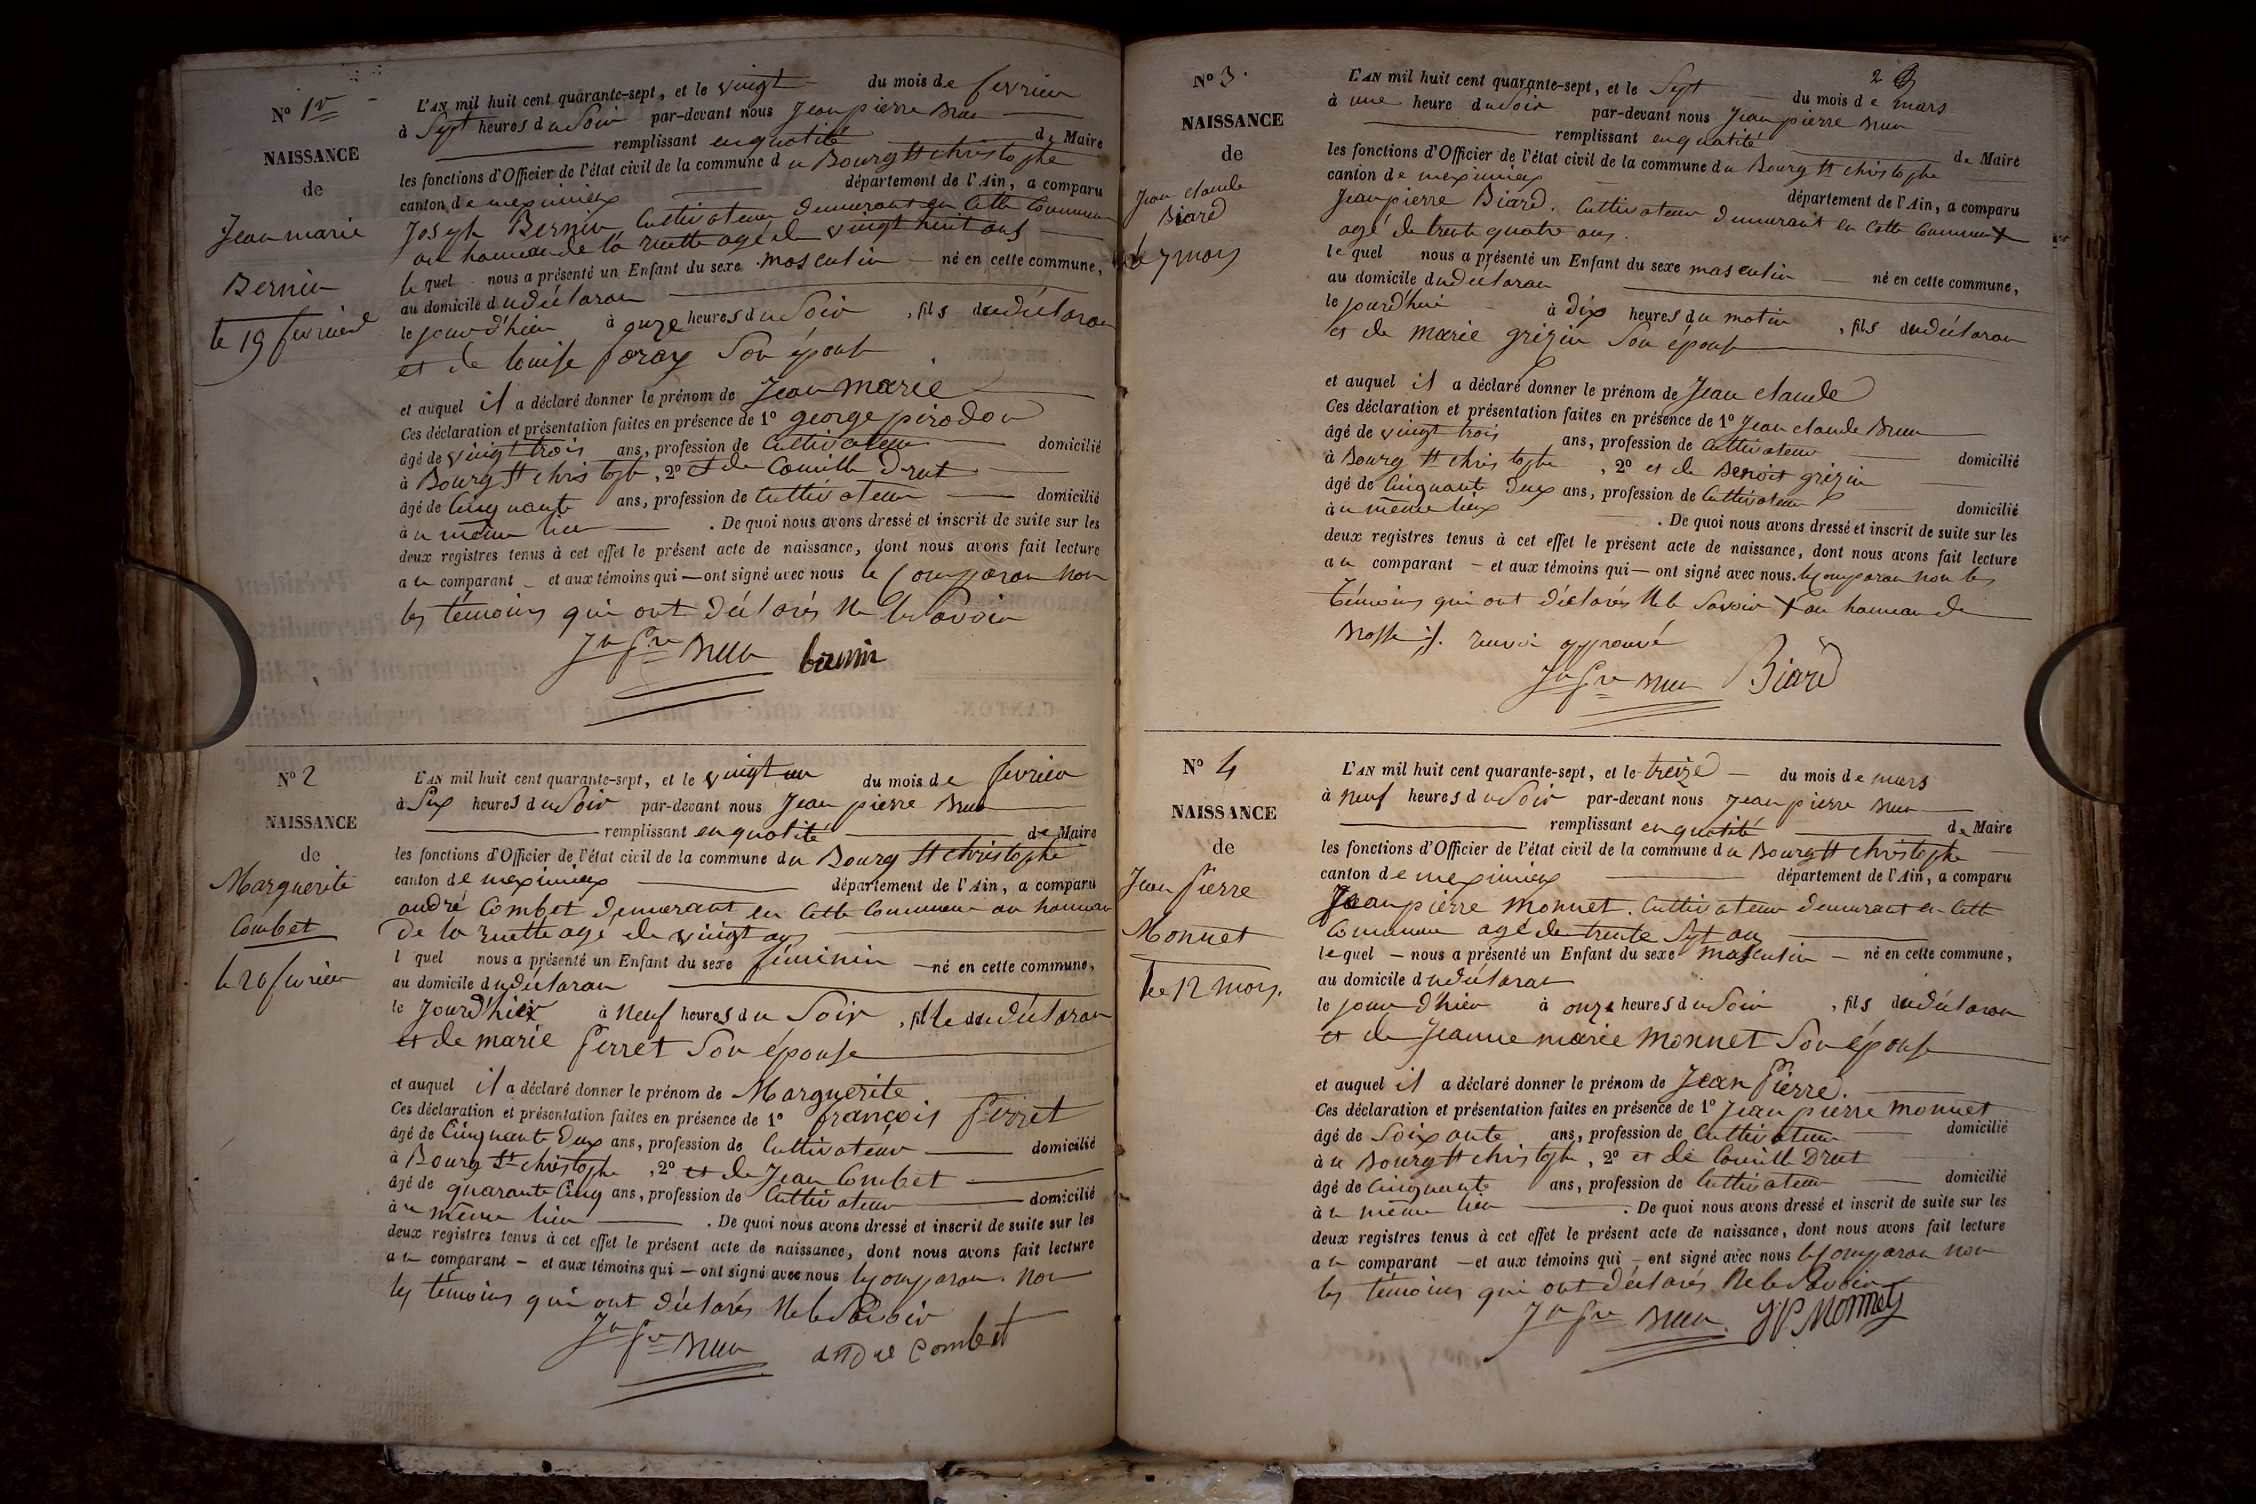 N° 1er
NAISSANCE
de
Jean marie
Bernin
le 19 fevrier
L'AN mil huit cent quarante-sept, et le vingt du mois de fevrier
à Sept heures du Soir par-devant nous Jean pierre Brun
remplissant en qualité de Maire
les fonctions d'Officier de l'état civil de la commune du Bourg St christophe
canton de meximieux département de l'Ain, a comparu
Joseph Bernin Cultivateur demurant en Cette Commune
au hameau de la ruette agé de vingt huit ans
le quel nous a présenté un Enfant du sexe masculin né en cette commune,
au domicile du déclaran
le jour d'hier à onze heures du Soir, fils du déclaran
et de louise foray Son épouse
et auquel il a déclaré donner le prénom de Jean marie
Ces déclaration et présentation faites en présence de 1° george pirodon
âgé de vingt trois ans, profession de Cultivateur domicilié
à Bourg St christophe, 2° et de Camille Drut
âgé de Cinquante ans, profession de Cultivateur domicilié
à u même lieu. De quoi nous avons dressé et inscrit de suite sur les
deux registres tenus à cet effet le présent acte de naissance, dont nous avons fait lecture
a u comparant et aux témoins qui — ont signé avec nous le Comparan non
les témoins qui ont déclarés Ne le Savoir
Jn Pre Brun bernin
N° 2
NAISSANCE
de
Marguerite
Combet
le 20 fevrier
L'AN mil huit cent quarante-sept, et le vingt un du mois de fevrier
à Six heures du Soir par-devant nous Jean pierre Brun
remplissant en qualité de Maire
les fonctions d'Officier de l'état civil de la commune du Bourg St christophe
canton de meximieux département de l'Ain, a comparu
andré Combet demurant en Cette Commune au hameau
De la ruette agé de vingt ans
l quel nous a présenté un Enfant du sexe féminin — né en cette commune,
au domicile du déclaran
le Jourd'hier à Neuf heures du Soir, fille du déclaran
et de marie Perret Son épouse
et auquel il a déclaré donner le prénom de Marguerite
Ces déclaration et présentation faites en présence de 1° françois Perret
âgé de Cinquante Deux ans, profession de Cultivateur domicilié
à Bourg St christophe, 2° et de Jean Combet
âgé de quarante Cinq ans, profession de Cultivateur domicilié
à u même lieu. De quoi nous avons dressé et inscrit de suite sur les
deux registres tenus à cet effet le présent acte de naissance, dont nous avons fait lecture
a u comparant — et aux témoins qui — ont signé avec nous le Comparan. Non
les témoins qui ont déclarés Ne le Savoir
Jn Pre Brun andre Combet
2
N° 3.
NAISSANCE
de
Jean claude
Biard
le 7 mars
L'AN mil huit cent quarante-sept, et le Sept du mois de mars
à une heure du Soir par-devant nous Jean pierre Brun
remplissant en qualité de Maire
les fonctions d'Officier de l'état civil de la commune du Bourg St christophe
canton de meximieux département de l'Ain, a comparu
Jean pierre Biard. Cultivateur demurant en Cette Commune X
agé de trente quatre ans.
le quel nous a présenté un Enfant du sexe masculin né en cette commune,
au domicile du déclaran
le jourd'hui à dix heures du matin, fils du déclaran
et de marie grizin Son épouse
et auquel il a déclaré donner le prénom de Jean claude
Ces déclaration et présentation faites en présence de 1° Jean claude Brun
âgé de vingt trois ans, profession de Cultivateur domicilié
à Bourg St christophe, 2° et de Benoit grizin
âgé de Cinquante Deux ans, profession de Cultivateur domicilié
à u même lieu. De quoi nous avons dressé et inscrit de suite sur les
deux registres tenus à cet effet le présent acte de naissance, dont nous avons fait lecture
a u comparant — et aux témoins qui — ont signé avec nous. le Comparan non les
témoins qui ont déclarés Ne le Savoir X au hameau de
renvoi approuvé
Jn Pre Brun Biard
N° 4
NAISSANCE
de
Jean Pierre
Monnet
le 12 mars.
L'AN mil huit cent quarante-sept, et le treize — du mois de mars
à Neuf heures du Soir par-devant nous Jean pierre Brun
remplissant en qualité de Maire
les fonctions d'Officier de l'état civil de la commune du Bourg St christophe
canton de meximieux département de l'Ain, a comparu
Jean pierre Monnet. Cultivateur demurant en Cette
Commune agé de trente Sept ans
le quel — nous a présenté un Enfant du sexe masculin — né en cette commune,
au domicile du déclaran
le jour d'hier à onze heures du Soir, fils du déclaran
et de Jeanne marie Monnet Son épouse
et auquel il a déclaré donner le prénom de Jean Pierre.
Ces déclaration et présentation faites en présence de 1° Jean pierre monnet
âgé de Soixante ans, profession de Cultivateur domicilié
à u Bourg St christophe, 2° et de Camille Drut
âgé de Cinquante ans, profession de Cultivateur domicilié
à u même lieu. De quoi nous avons dressé et inscrit de suite sur les
deux registres tenus à cet effet le présent acte de naissance, dont nous avons fait lecture
a u comparant — et aux témoins qui — ont signé avec nous le Comparan non
les témoins qui ont déclarés Ne le Savoir
Jn Pre Brun. JP Monnet